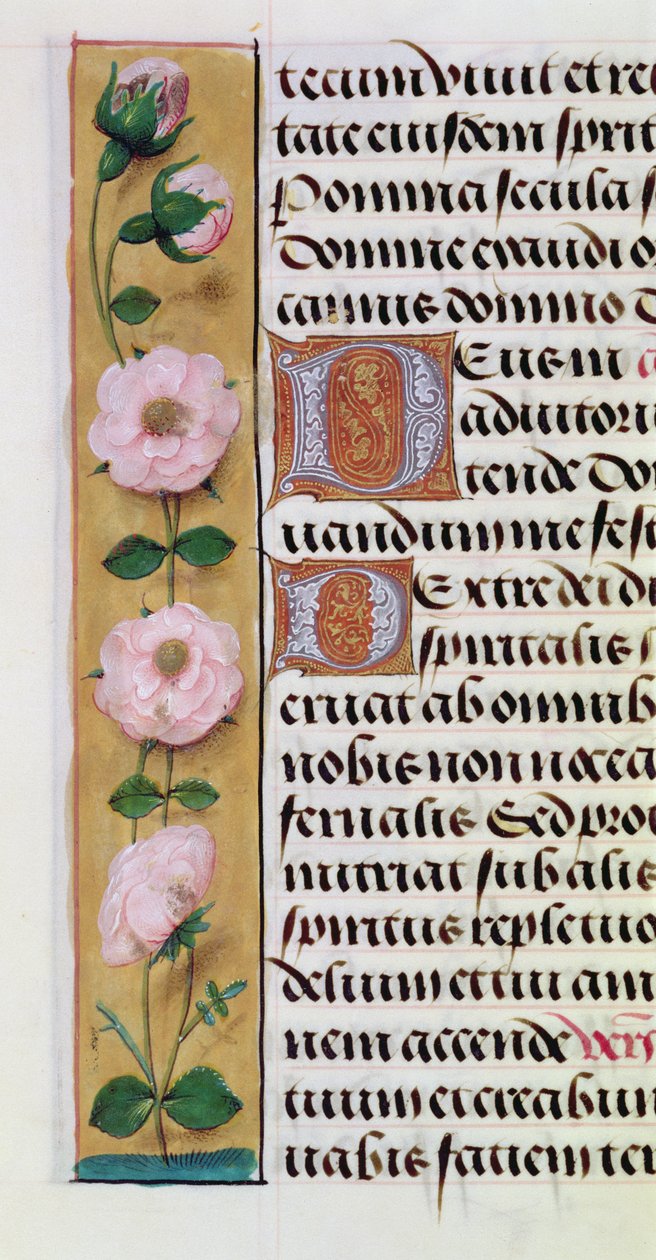 tecum viuit et re
tate eiusdem spirit
p omnia secula s
domine exaudi o
camus domino D
Deus in a
adiutoriu
tende Dom
uandum me fest
Dextre dei di
spiritalis
eruat ab omnib
nobis non nocea
fernalis Sed prot
nutriat sub alis
spiritus repletuo
delium et tui am
nem accende vers
tuum et creabun
uabis faciem ter